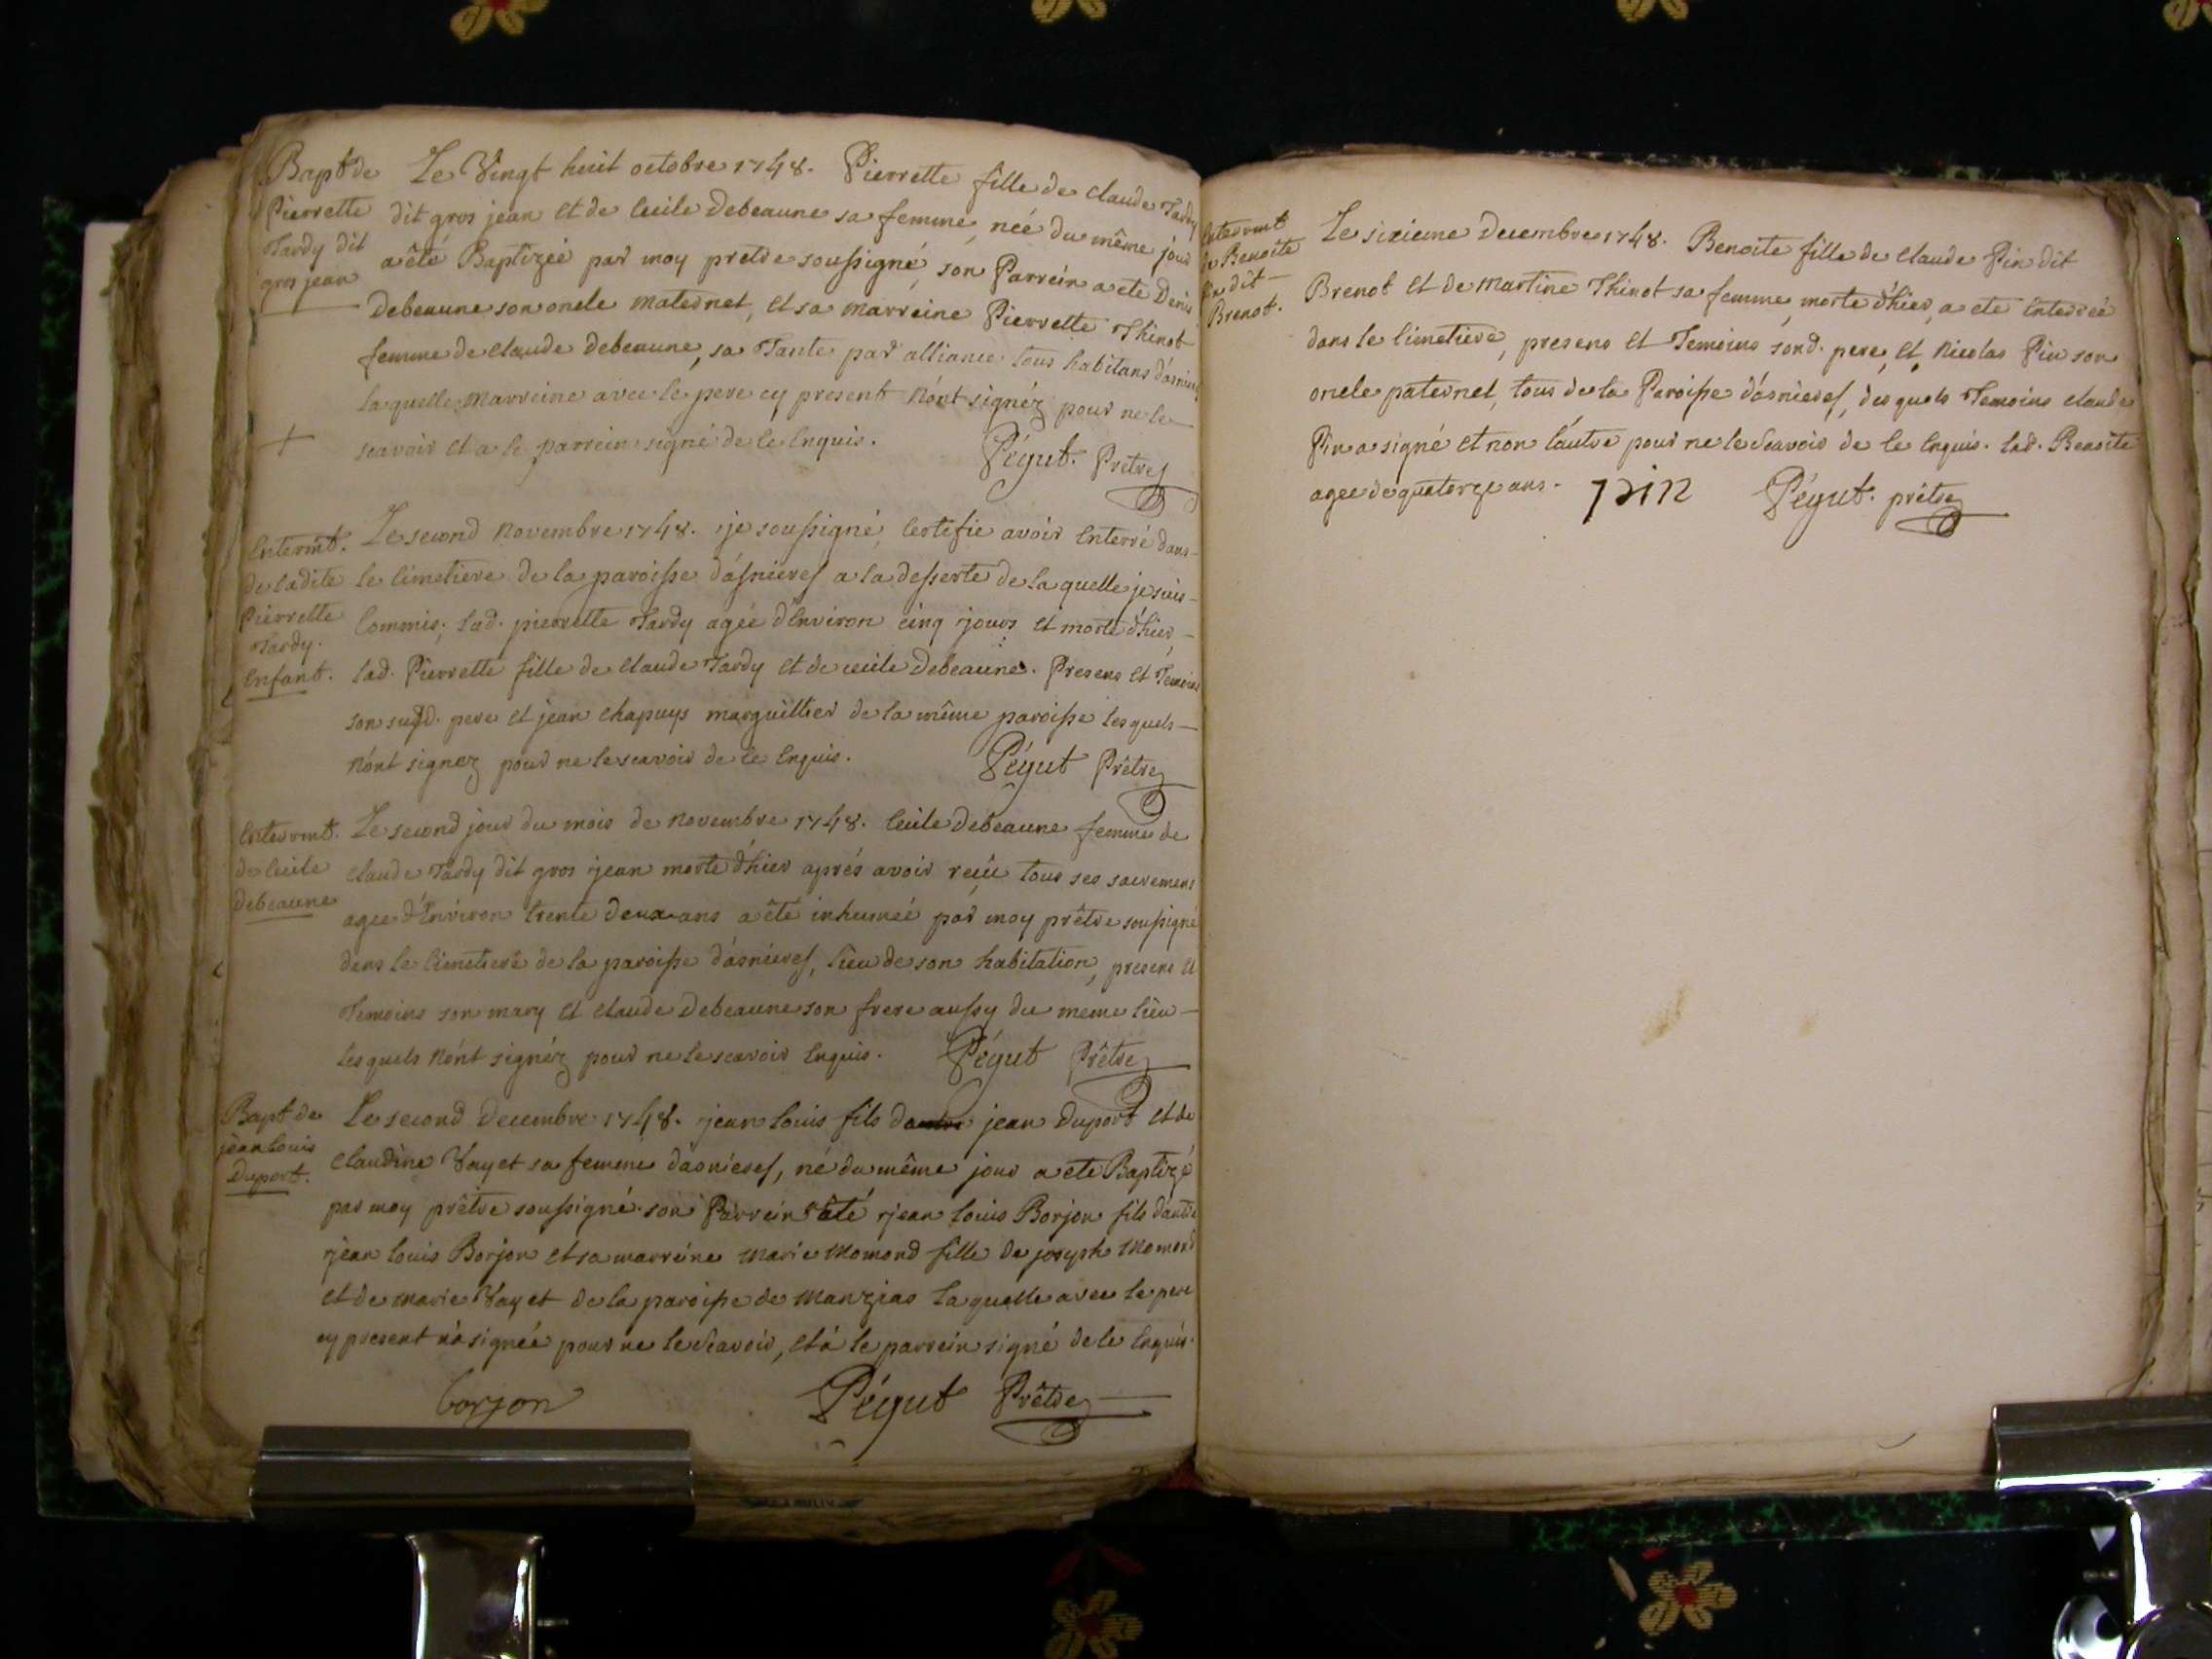 Bapt de
Pierrette
Tardy dit
gros jean
Le Vingt huit octobre 1748. Pierrette fille de claude Tardy
dit gros jean et de Cecile Debeaune sa femme, neé du même jour
a êté Baptizeé par moy pretre soussigné, son Parrein a ete Denis
Debeaune son oncle maternel, et sa marreine Pierrette Thinot
femme de claude Debeaune, sa Tante par alliance tous habitans d'asnieres
laquelle marreine avec le pere cy present n'ont signéz pour ne le
scavoir et a le parrein signé de ce Enquis.
Pégut. Prêtre
Enterrmt.
de ladite
Pierrette
Tardy.
Enfant.
Le second Novembre 1748. je soussigné, Certefie avoir Enterré dans
le Cimetiere de la paroisse d'asnieres a la desserte de laquelle je suis
Commis; lad. pierrette Tardy ageé d'Environ cinq jours et morte d'hier,
lad. Pierrette fille de claude Tardy et de cecile Debeaune. Presens et Temoins
son susd. pere et jean chapuys marguillier de la même paroisse lesquels
n'ont signez pour ne le scavoir de ce Enquis.
Pégut Prêtre
Enterrmt.
de Cecile
Debeaune
Le second jour du mois de Novembre 1748. Cecile Debeaune femme de
claude Tardy dit gros jean morte d'hier aprés avoir reçû tous ses sacremens
agee d'Environ trente deux ans a êté inhumeé par moy prêtre soussigné
dans le Cimetiere de la paroisse d'asnieres, lieu de son habitation, presens et
Temoins son mary et claude Debeaune son frere aussy du meme lieu
lesquels n'ont signéz pour ne le scavoir Enquis.
Pégut Prêtre
Bapt de
jean Louis
Duport.
Le second Decembre 1748. jean Louis fils dautre jean Duport et de
Claudine Vayet sa femme d'asnieres, né du même jour a ete Baptizé
par moy prêtre soussigné. son Parrein a été jean Louis Borjon fils d'autre
jean Louis Borjon et sa marreine marie Momond fille de joseph Momond
et de marie Vayet de la paroisse de Manzias laquelle avec le pere
cy present n'a signeé pour ne le scavoir, et a le parrein signé de ce Enquis.
borjon Pégut Prêtre
Enterrmt
de Benoite
Pin dit
Brenot.
Le sixieme Decembre 1748. Benoite fille de Claude Pin dit
Brenot et de Martine Thinot sa femme, morte d'hier, a ete Enterreé
dans le Cimetiere, presens et Temoins sond. pere, et Nicolas Pin son
oncle paternel, tous de la Paroisse d'asnieres, desquels Temoins claude
Pin a signé et non l'autre pour ne le scavoir de ce Enquis. lad. Benoite
agee de quatorze ans. pin Pégut. prêtre